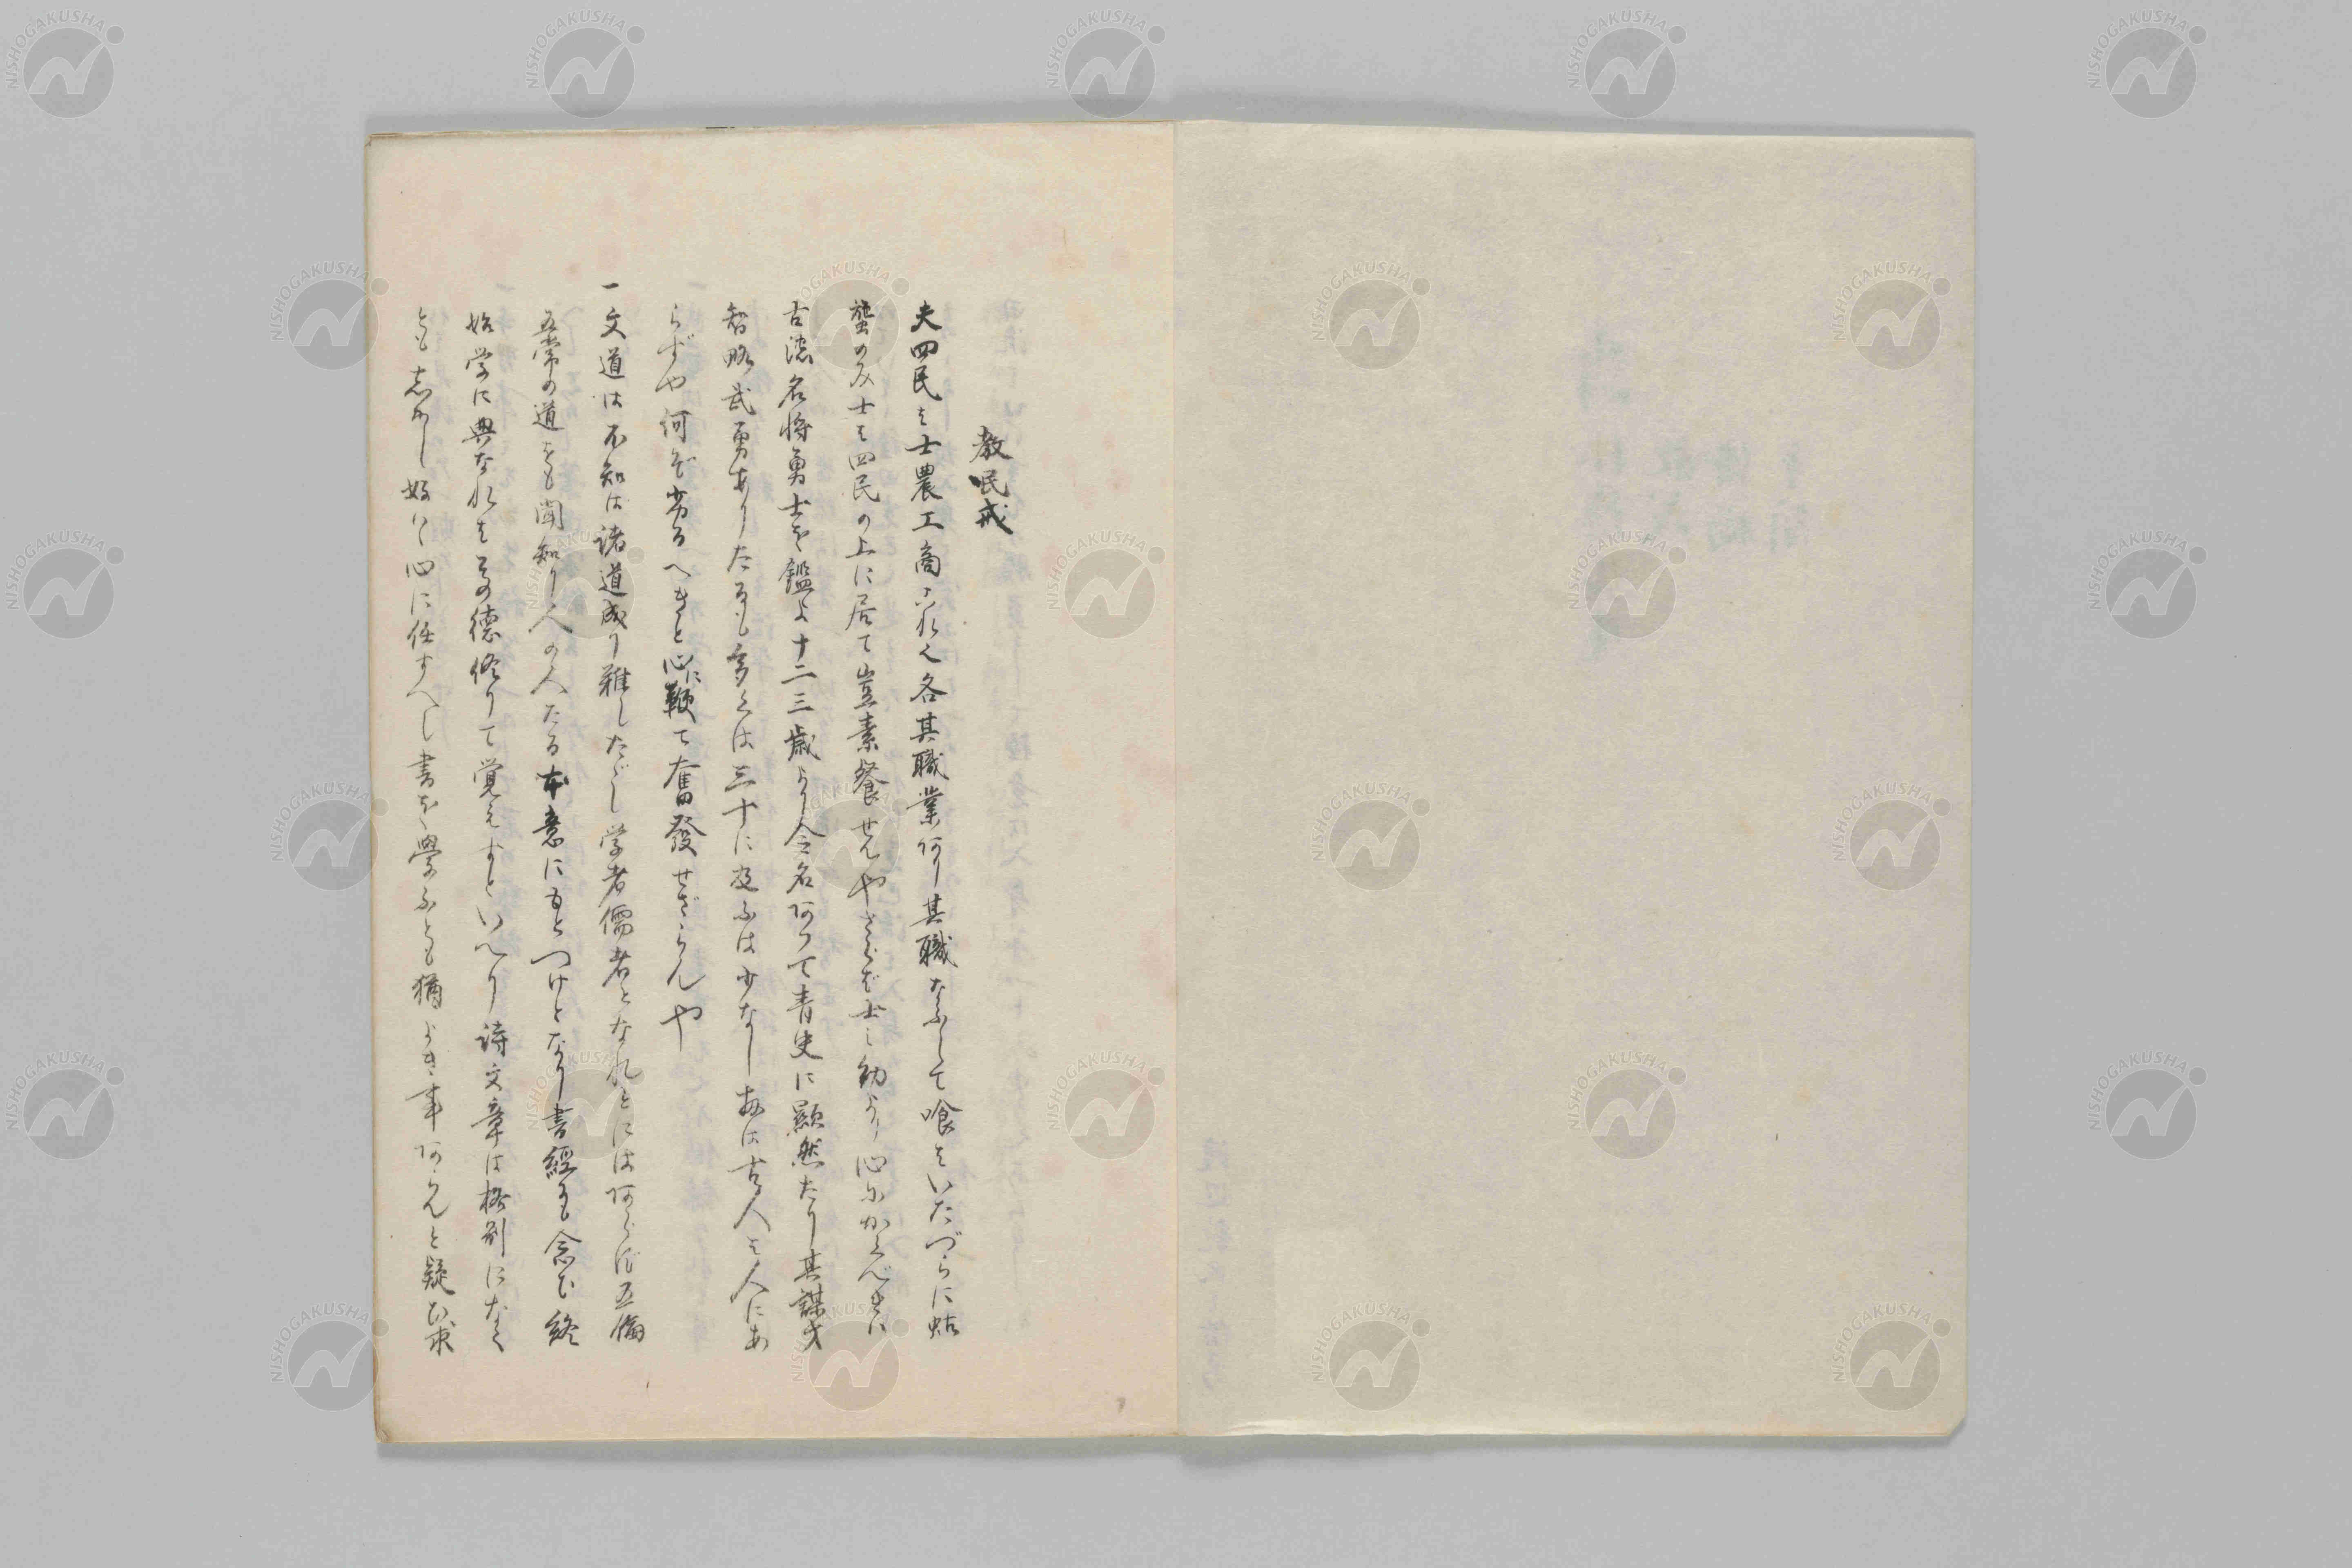 教呡戒
夫四民と士農工商これ也各其職業あり其職なふして喰をいたづらに蛣
蜣のみ士は四民の上に居て豈素餐せんやさらば士は幼より心にかくべきに
古漢名将勇士を鑑よ十二三歳より令名あつて青史に顕然たり其謀才
智略武勇ありたるも多くは三十に及ふは少なし故は古人も人にあ
らずや何ぞ劣るへきと心に鞭て奮發せざらんや
一文道は不知は諸道成り難したゞし学者儒者となれとにはあらば五倫
五常の道をも聞知り人の人たる本意にもとつけとなり書經にも念ひ終
始学に典なれは其の徳修りて覚えずといへり詩文章は格別になく
とも志かし好は心に任すへし書を學ふとも猶よき事あらんと疑ひ求
NISHOGAKUSHA